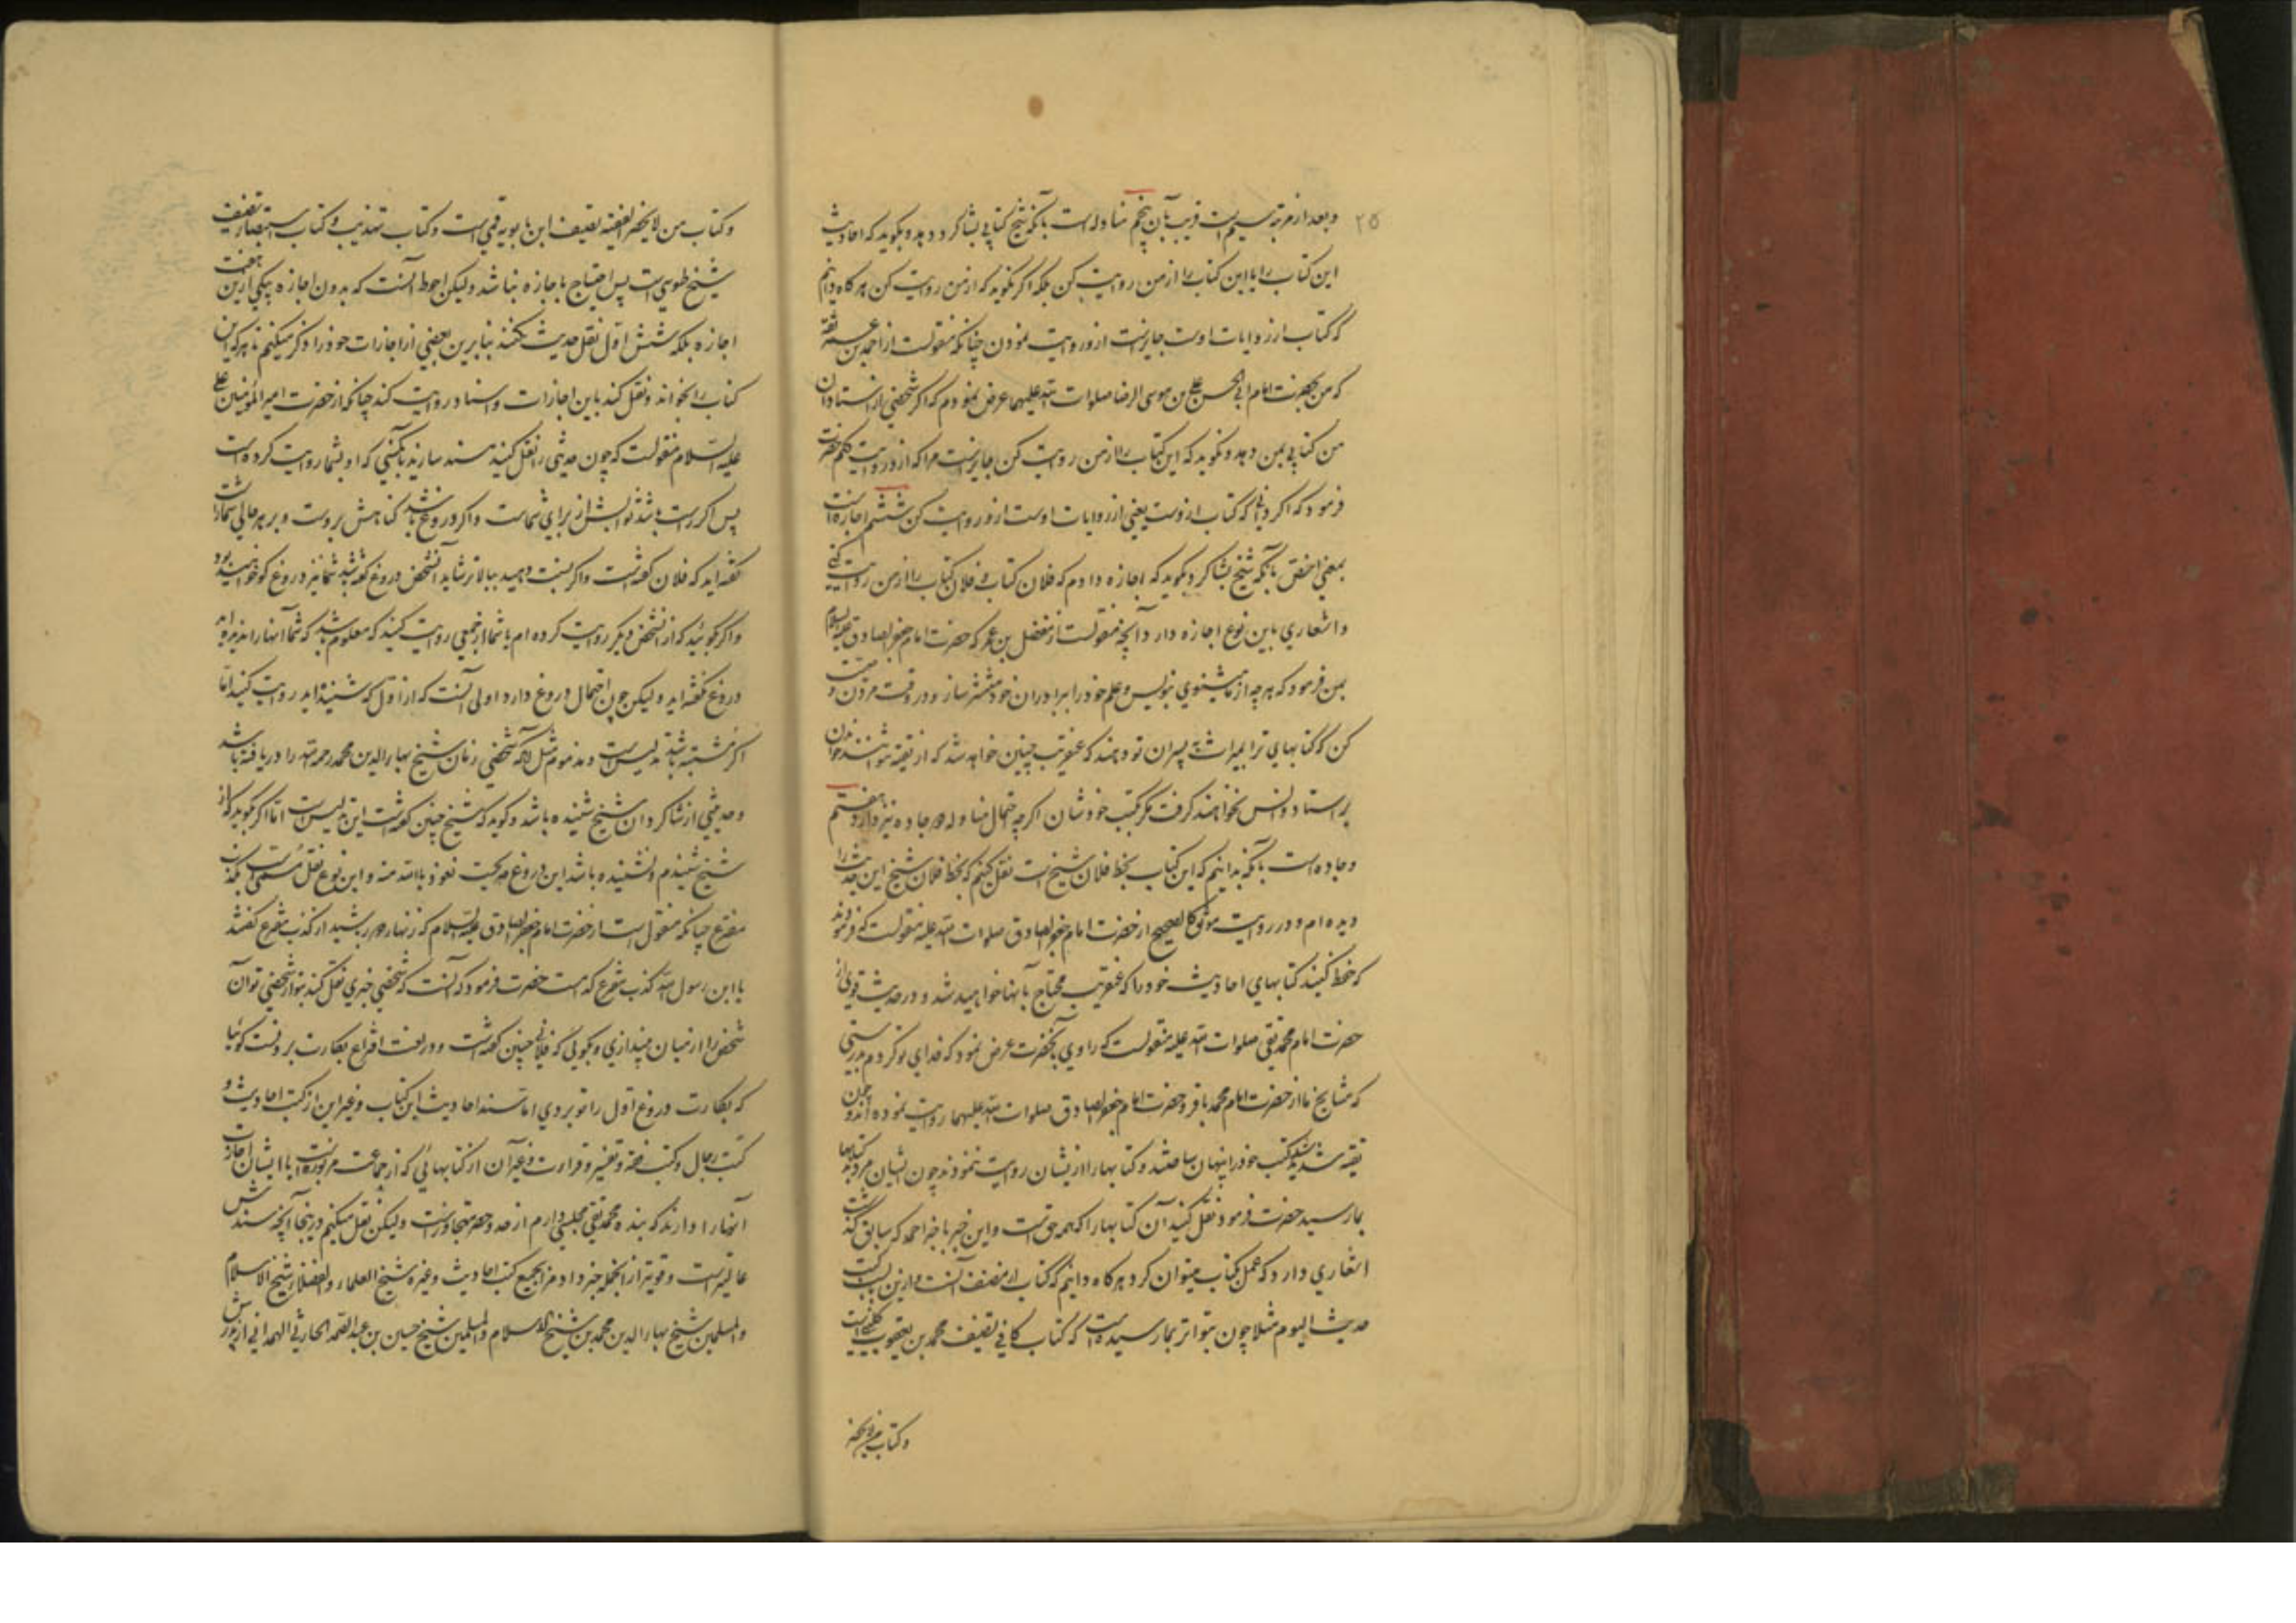 ۲۵
و بعد از مرتبه سیم است قریب بآن پنجم مناوله است بآنکه شیخ کتابی بشاکرد دهد و بکوید که احادیث
این کتاب را یا این کتاب را از من روایت کن بلکه اکر نکوید که از من روایت کن هرکاه دانم
که کتاب از روایات اوست جایزست ازو روایت نمودن چنانکه منقولست از احمد بن عمر ثقه
که من بحضرت امام ابی الحسن علی بن موسی الرضا صلوات الله علیهما عرض نمودم که اکر شخصی از استادان
من کتابی بمن دهد و نکوید که این کتاب را از من روایت کن جایزست مرا که ازو روایت کنم حضرت
فرمود که اکر دانی که کتاب ازوست یعنی از روایات اوست ازو روایت کن ششم اجازه است
بمعنی اخص بآنکه شیخ بشاکرد بکوید که اجازه دادم که فلان کتاب و فلان کتاب را از من روایت کنی
و اشعاری باین نوع اجازه دارد آنچه منقولست از مفضل بن عمر که حضرت امام جعفر الصادق علیه السلام
بمن فرمود که هر چه از ما میشنوی بنویس و علم خود را برادران خود منتشر ساز و در وقت مردن وصیت
کن که کتابهای ترا بمیراث به پسران تو دهند که عنقریب چنین خواهد شد که از تقیه نتوانند خواندن
بر استاد و انس نخواهند کرفت مکر بکتب خودشان اکرچه احتمال مناوله و وجاده نیز دارد هفتم
وجاده است بآنکه بدانیم که این کتاب بخط فلان شیخ است نقل کنیم که بخط فلان شیخ این حدیث را
دیده ام و در روایت موثق کالصحیح از حضرت امام جعفر الصادق صلوات الله علیه منقولست که فرمودند
که حفظ کنید کتابهای احادیث خود را که عنقریب محتاج بآنها خواهید شد و در حدیث قوی از
حضرت امام محمد تقی صلوات الله علیه منقولست که راوی بآنحضرت عرض نمود که فدای تو کردم بدرستی
که مشایخ ما از حضرت امام محمد باقر و حضرت امام جعفر الصادق صلوات الله علیهما روایت نموده اند و چون
تقیه شدید بود کتب خود را پنهان ساختند و کتابها را از ایشان روایت ننمودند چون ایشان مردند کتابها
بما رسید حضرت فرمود نقل کنید آن کتابها را که همه حق است و این خبر با خبر احمد که سابق کذشت
اشعاری دارد که عمل بکتاب میتوان کرد هرکاه دانیم که کتاب از مصنف آنست و ازین باب است کتب
حدیث الیوم مثلا چون بتواتر بما رسیده است که کتاب کافی تصنیف محمد بن یعقوب کلینی است
و کتاب من لا یحضر
و کتاب من لا یحضر الفقیه تصنیف ابن بابویه قمی است و کتاب تهذیب و کتاب استبصار تصنیف
شیخ طوسی است پس احتیاج باجازه نباشد ولیکن احوط آنست که بدون اجازه بیکی ازین هفت
اجازه بلکه شش اول نقل حدیث نکنند بنا برین بعضی از اجازات خود را ذکر میکنیم تا هر که این
کتاب را بخواند و نقل کند باین اجازات و اسناد روایت کند چنانکه از حضرت امیر المؤمنین علی
علیه السلام منقولست که چون حدیثی را نقل کنید مسند سازید بآنکسی که او بشما روایت کرده است
پس اکر راست باشد ثوابش از برای شماست و اکر دروغ باشد کناهش بروست و بر هر حالی شما راست
کفته اید که فلان کفته است و اکر نسبت دهید ببالاتر شاید آنشخص دروغ کفته باشد شما نیز دروغ کو خواهید بود
و اکر بکوئید که از آنشخص دیکر روایت کرده ام یا شما از جمعی روایت کنید که معلوم باشد که شما آنها را ندیده اید
دروغ کفته اید ولیکن چون احتمال دروغ دارد اولی آنست که از اول که شنیده اید روایت کنید اما
اکر مشتبه باشد تدلیس است و مذموم مثل آنکه شخصی زمان شیخ بهاء الدین محمد رحمه الله را دریافته باشد
و حدیثی از شاکردان شیخ شنیده باشد و کوید که شیخ چنین کفته است این تدلیس است اما اکر بکوید که از
شیخ شنیدم و نشنیده باشد این دروغ صریحست نعوذ بالله منه و این نوع نقل مسمی است بکذب
مفترع چنانکه منقول است از حضرت امام جعفر الصادق علیه السلام که زنهار دور باشید از کذب مفترع کفتند
یا ابن رسول الله کذب مفترع کدامست حضرت فرمود که آنست که شخصی خبری نقل کند بتو از شخصی تو آن
شخص را از میان میندازی و بکوئی که فلانی چنین کفته است و در لغت افتراع بکارت بردنست کوئیا
که بکارت دروغ اول را تو بردی اما سند احادیث این کتاب و غیر این از کتب احادیث و
کتب رجال و کتب فقه و تفسیر و قراءت و غیر آن از کتابهائی که از جماعت مزبور است یا با ایشان اجازت
آنها را دارند که بنده محمد تقی مجلسی دارم از حد و حصر متجاوزست ولیکن نقل میکنیم درینجا آنچه سندش
عالیتر است و قویتر از آنجمله خبر داد مرا بجمیع کتب احادیث و غیره شیخ العلماء و الفضلاء شیخ الاسلام
و المسلمین شیخ بهاء الدین محمد بن شیخ الاسلام و المسلمین شیخ حسین بن عبد الصمد الحارثی الهمدانی از پدرش